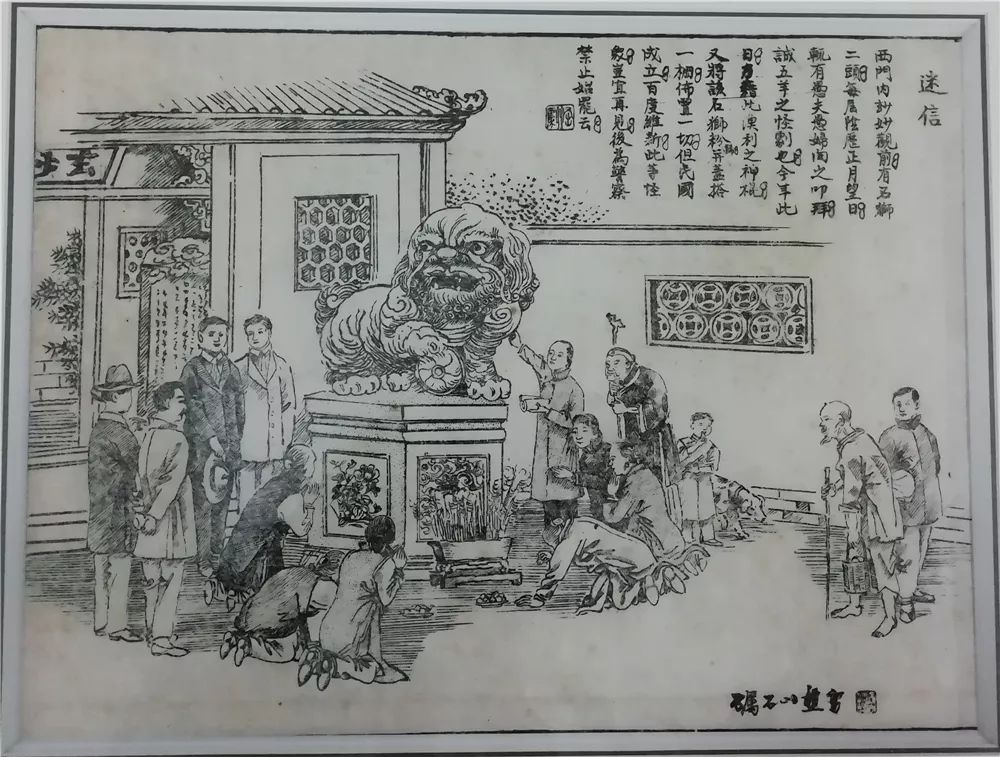 迷信
西門內妙觀前有石獅
二頭每屆陰歷正月望日
輒有愚夫愚婦向之叩拜
誠五羊之怪劇也今年此
日此漁利之神棍
又將該石獅粉蓋搭
一棚佈置一切但民國
成立百度維新此等怪
象豈宜再見後為警察
禁止始罷云
玄
石